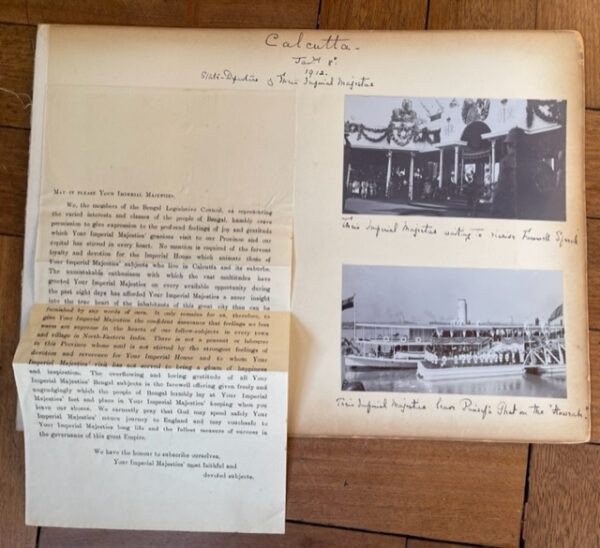 Calcutta.
Jany 8th
1912.
State Departure of Their Imperial Majesties
MAY IT PLEASE YOUR IMPERIAL MAJESTIES,
We, the members of the Bengal Legislative Council, as representing
the varied interests and classes of the people of Bengal, humbly crave
permission to give expression to the profound feelings of joy and gratitude
which Your Imperial Majesties' gracious visit to our Province and our
capital has stirred in every heart. No mention is required of the fervent
loyalty and devotion for the Imperial House which animate those of
Your Imperial Majesties' subjects who live in Calcutta and its suburbs.
The unmistakable enthusiasm with which the vast multitudes have
greeted Your Imperial Majesties on every available opportunity during
the past eight days has afforded Your Imperial Majesties a surer insight
into the true heart of the inhabitants of this great city than can be
furnished by any words of ours. It only remains for us, therefore, to
give Your Imperial Majesties the confident assurance that feelings no less
warm are supreme in the hearts of our fellow-subjects in every town
and village in North-Eastern India. There is not a peasant or labourer
in this Province whose soul is not stirred by the strongest feelings of
devotion and reverence for Your Imperial House and to whom Your
Imperial Majesties' visit has not served to bring a gleam of happiness
and inspiration. The overflowing and loving gratitude of all Your
Imperial Majesties' Bengal subjects is the farewell offering given freely and
ungrudgingly which the people of Bengal humbly lay at Your Imperial
Majesties' feet and place in Your Imperial Majesties' keeping when you
leave our shores. We earnestly pray that God may speed safely Your
Imperial Majesties' return journey to England and may vouchsafe to
Your Imperial Majesties long life and the fullest measure of success in
the governance of this great Empire.
We have the honour to subscribe ourselves,
Your Imperial Majesties' most faithful and
devoted subjects.
Their Imperial Majesties waiting to receive Farewell Speech
Their Imperial Majesties leave Prinsep's Ghat on the "Howrah."